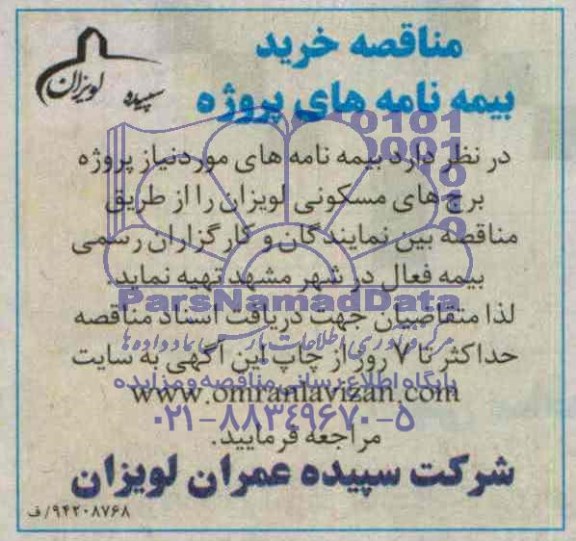 مناقصه خرید
بیمه نامه های پروژه
سپیده لویزان
در نظر دارد بیمه نامه های موردنیاز پروژه
برج های مسکونی لویزان را از طریق
مناقصه بین نمایندگان و کارگزاران رسمی
بیمه فعال در شهر مشهد تهیه نماید.
ParsNamadData
لذا متقاضیان جهت دریافت اسناد مناقصه
مرکز فرآوری اطلاعات پارس نماد داده ها
حداکثر تا ۷ روز از چاپ این آگهی به سایت
پایگاه اطلاع رسانی مناقصه و مزایده
www.omranlavizan.com
۰۲۱-۸۸۳۴۹۶۷۰-۵
مراجعه فرمایید.
شرکت سپیده عمران لویزان
۹۴۲۰۸۷۶۸/ف